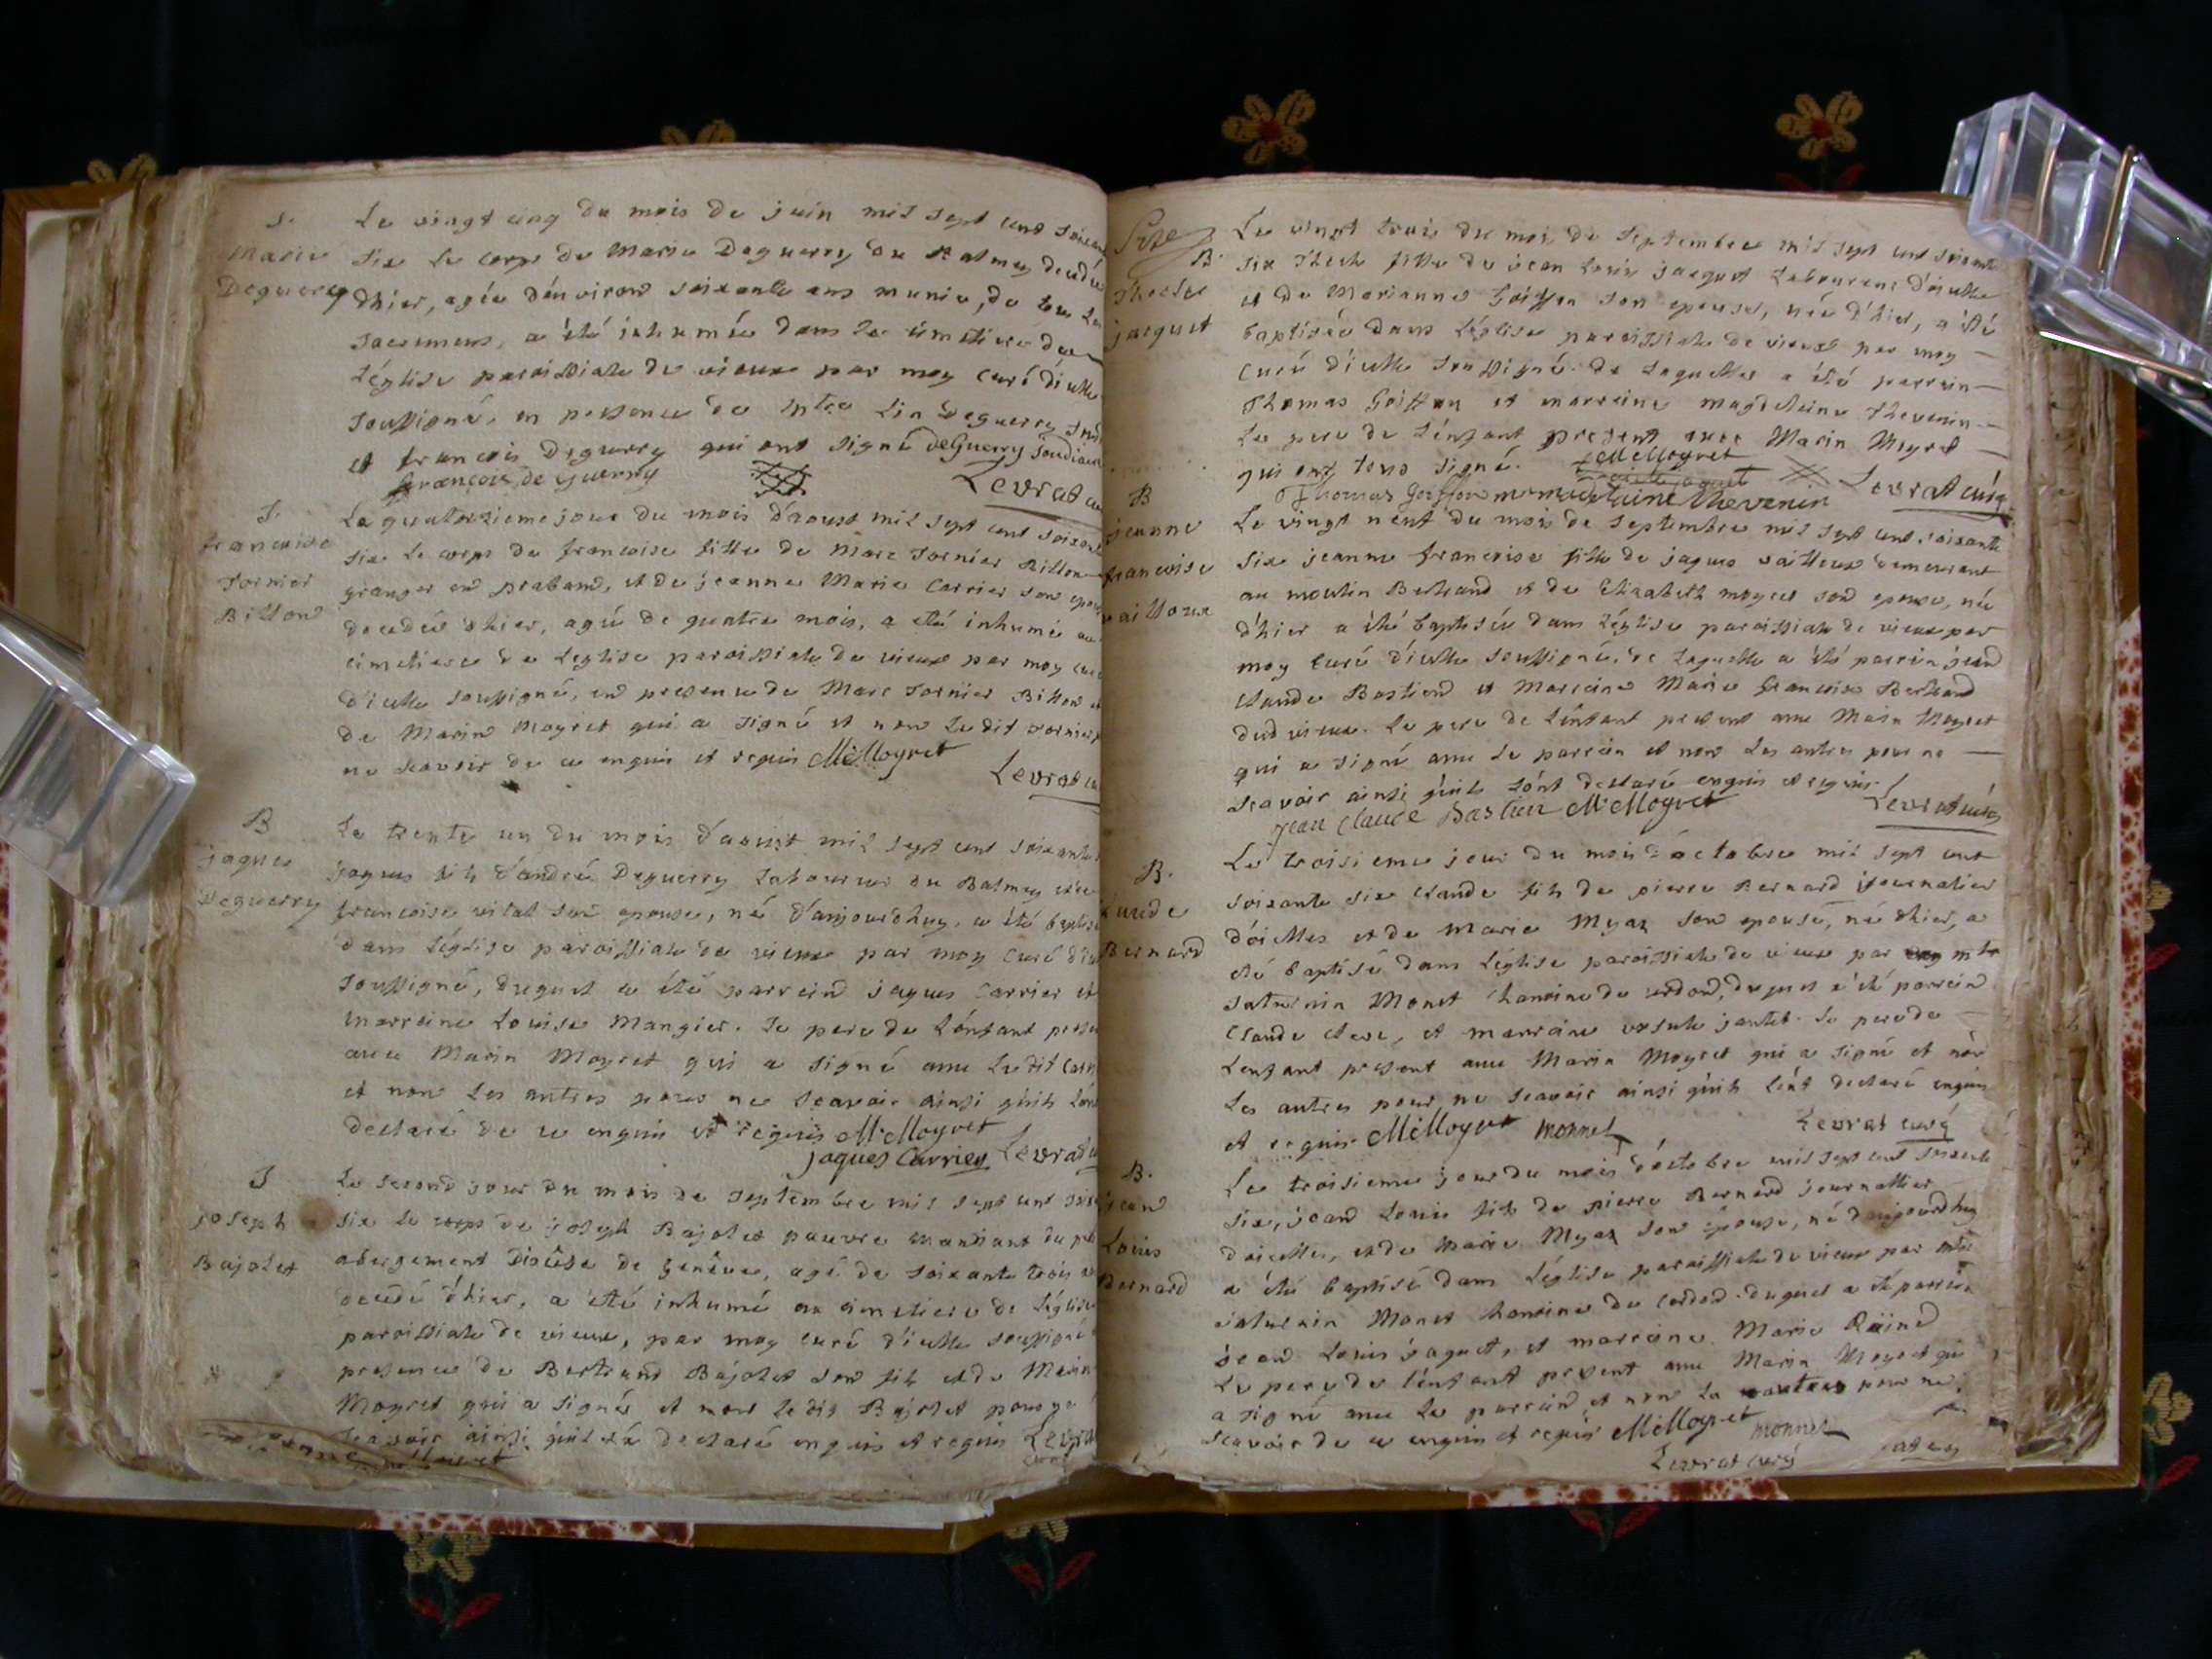 S.
Marie
Deguerry
Le vingt cinq du mois de juin mil sept cent soixante
six le corps de Marie Deguerry du Balmey decedée
d'hier, agée d'environ soixante ans munie, de tous les
sacremens, a été inhumée dans le cimetiere de
l'église paroissiale de vieux par moy curé d'icelle
soussigné, en presence de Deguerry
et francois Deguerry qui ont signé DeGuerry
francois de guerry
Levrat cu
S.
francoise
Tornier
Billon
Le quatorzieme jour du mois d'aoust mil sept cent soixante
six le corps de francoise fille de Marc Tornier Billon
granger en praband, et de jeanne Marie Carrier son epouse
decedée d'hier, agée de quatre mois, a eté inhumée au
cimetiere de l'eglise paroissiale de vieux par moy curé
d'icelle soussigné, en presence de Marc Tornier Billon et
de Marin Moyret qui a signé et non ledit Tornier
ne scavoir de ce enquis et requis M Moyret
Levrat cu
B
jaques
Deguerry
Le trente un du mois d'aoust mil sept cent soixante
jaques fils d'andré Deguerry laboureur du Balmey et de
francoise vital son epouse, né d'aujourdhuy, a été baptisé
dans l'église paroissiale de vieux par moy curé d'ic
soussigné, duquel a été parrein jaques Carrier et
marreine Louise Mangier. Le pere de l'enfant presen
avec Marin Moyret qui a signé avec ledit Carr
et non les autres pour ne scavoir ainsi qu'ils l'on
declaré de ce enquis et requis M Moyret
jaques Carrier Levrat cu
S
joseph
Bajolet
Le second jour du mois de septembre mil sept cent soix
six le corps de joseph Bajolet pauvre mandiant du peti
abergement Diocèse de Genève, agé de soixante trois ans
decedé d'hier, a été inhumé au cimetiere de l'église
paroissiale de vieux, par moy curé d'icelle soussigné
presence de Bertrand Bajolet son fils et de Marin
Moyret qui a signé et non ledit Bajolet pour ne
scavoir ainsi qu'il l'a declaré enquis et requis Levrat
B.
Thecle
jacquet
Le vingt trois du mois de septembre mil sept cent soixante
six Thecle fille de jean Louis jacquet Laboureur d'icelle
et de Marianne Goiffon son epouse, née d'hier, a été
baptisée dans l'église paroissiale de vieux par moy
curé d'icelle soussigné. de laquelle a été parrein
Thomas Goiffon et marreine magdeleine thevenin
Le pere de l'enfant present avec Marin Moyret
qui ont tous signé. M Moyret
Thomas Goiffon madelaine thevenin Levrat curé
B
jeanne
francoise
vailloux
Le vingt neuf du mois de septembre mil sept cent soixante
six jeanne francoise fille de jaques vailloux demeurant
au moulin Bertrand et de Elizabeth moyret son epouse, née
d'hier a été baptisée dans l'église paroissiale de vieux par
moy curé d'icelle soussigné, de laquelle a été parrein jean
claude Bastien et Marreine Marie francoise Bertrand
dud vieux. Le pere de l'enfant present avec Marin Moyret
qui a signé avec le parrein et non les autres pour ne
scavoir ainsi qu'ils l'ont declaré enquis et requis.
jean claude Bastien M Moyret Levrat curé
B.
Claude
Bernard
Le troisieme jour du mois d'octobre mil sept cent
soixante six claude fils de pierre Bernard journalier
d'oicelles et de marie Myaz son epouse, né d'hier, a
été baptisé dans l'église paroissiale de vieux par mtre
saturnin Monet chanoine de, duquel a été parrein
claude clerc, et marreine ursule jantet. Le pere de
l'enfant present avec Marin Moyret qui a signé et non
les autres pour ne scavoir ainsi qu'ils l'ont declaré enquis
et requis M Moyret monnet Levrat curé
B.
jean
Louis
Bernard
Le troisieme jour du mois d'octobre mil sept cent soixante
six, jean Louis fils de pierre Bernard journallier
d'oicelles, et de Marie Myaz son epouse, né d'aujourdhuy
a été baptisé dans l'église paroissiale de vieux par mtre
saturnin Monet chanoine de. duquel a été parrein
jean Louis jaquet, et marreine Marie
Le pere de l'enfant present avec Marin Moyret qui
a signé avec le parrein et non la pour ne
scavoir de ce enquis et requis M Moyret monnet
Levrat curé